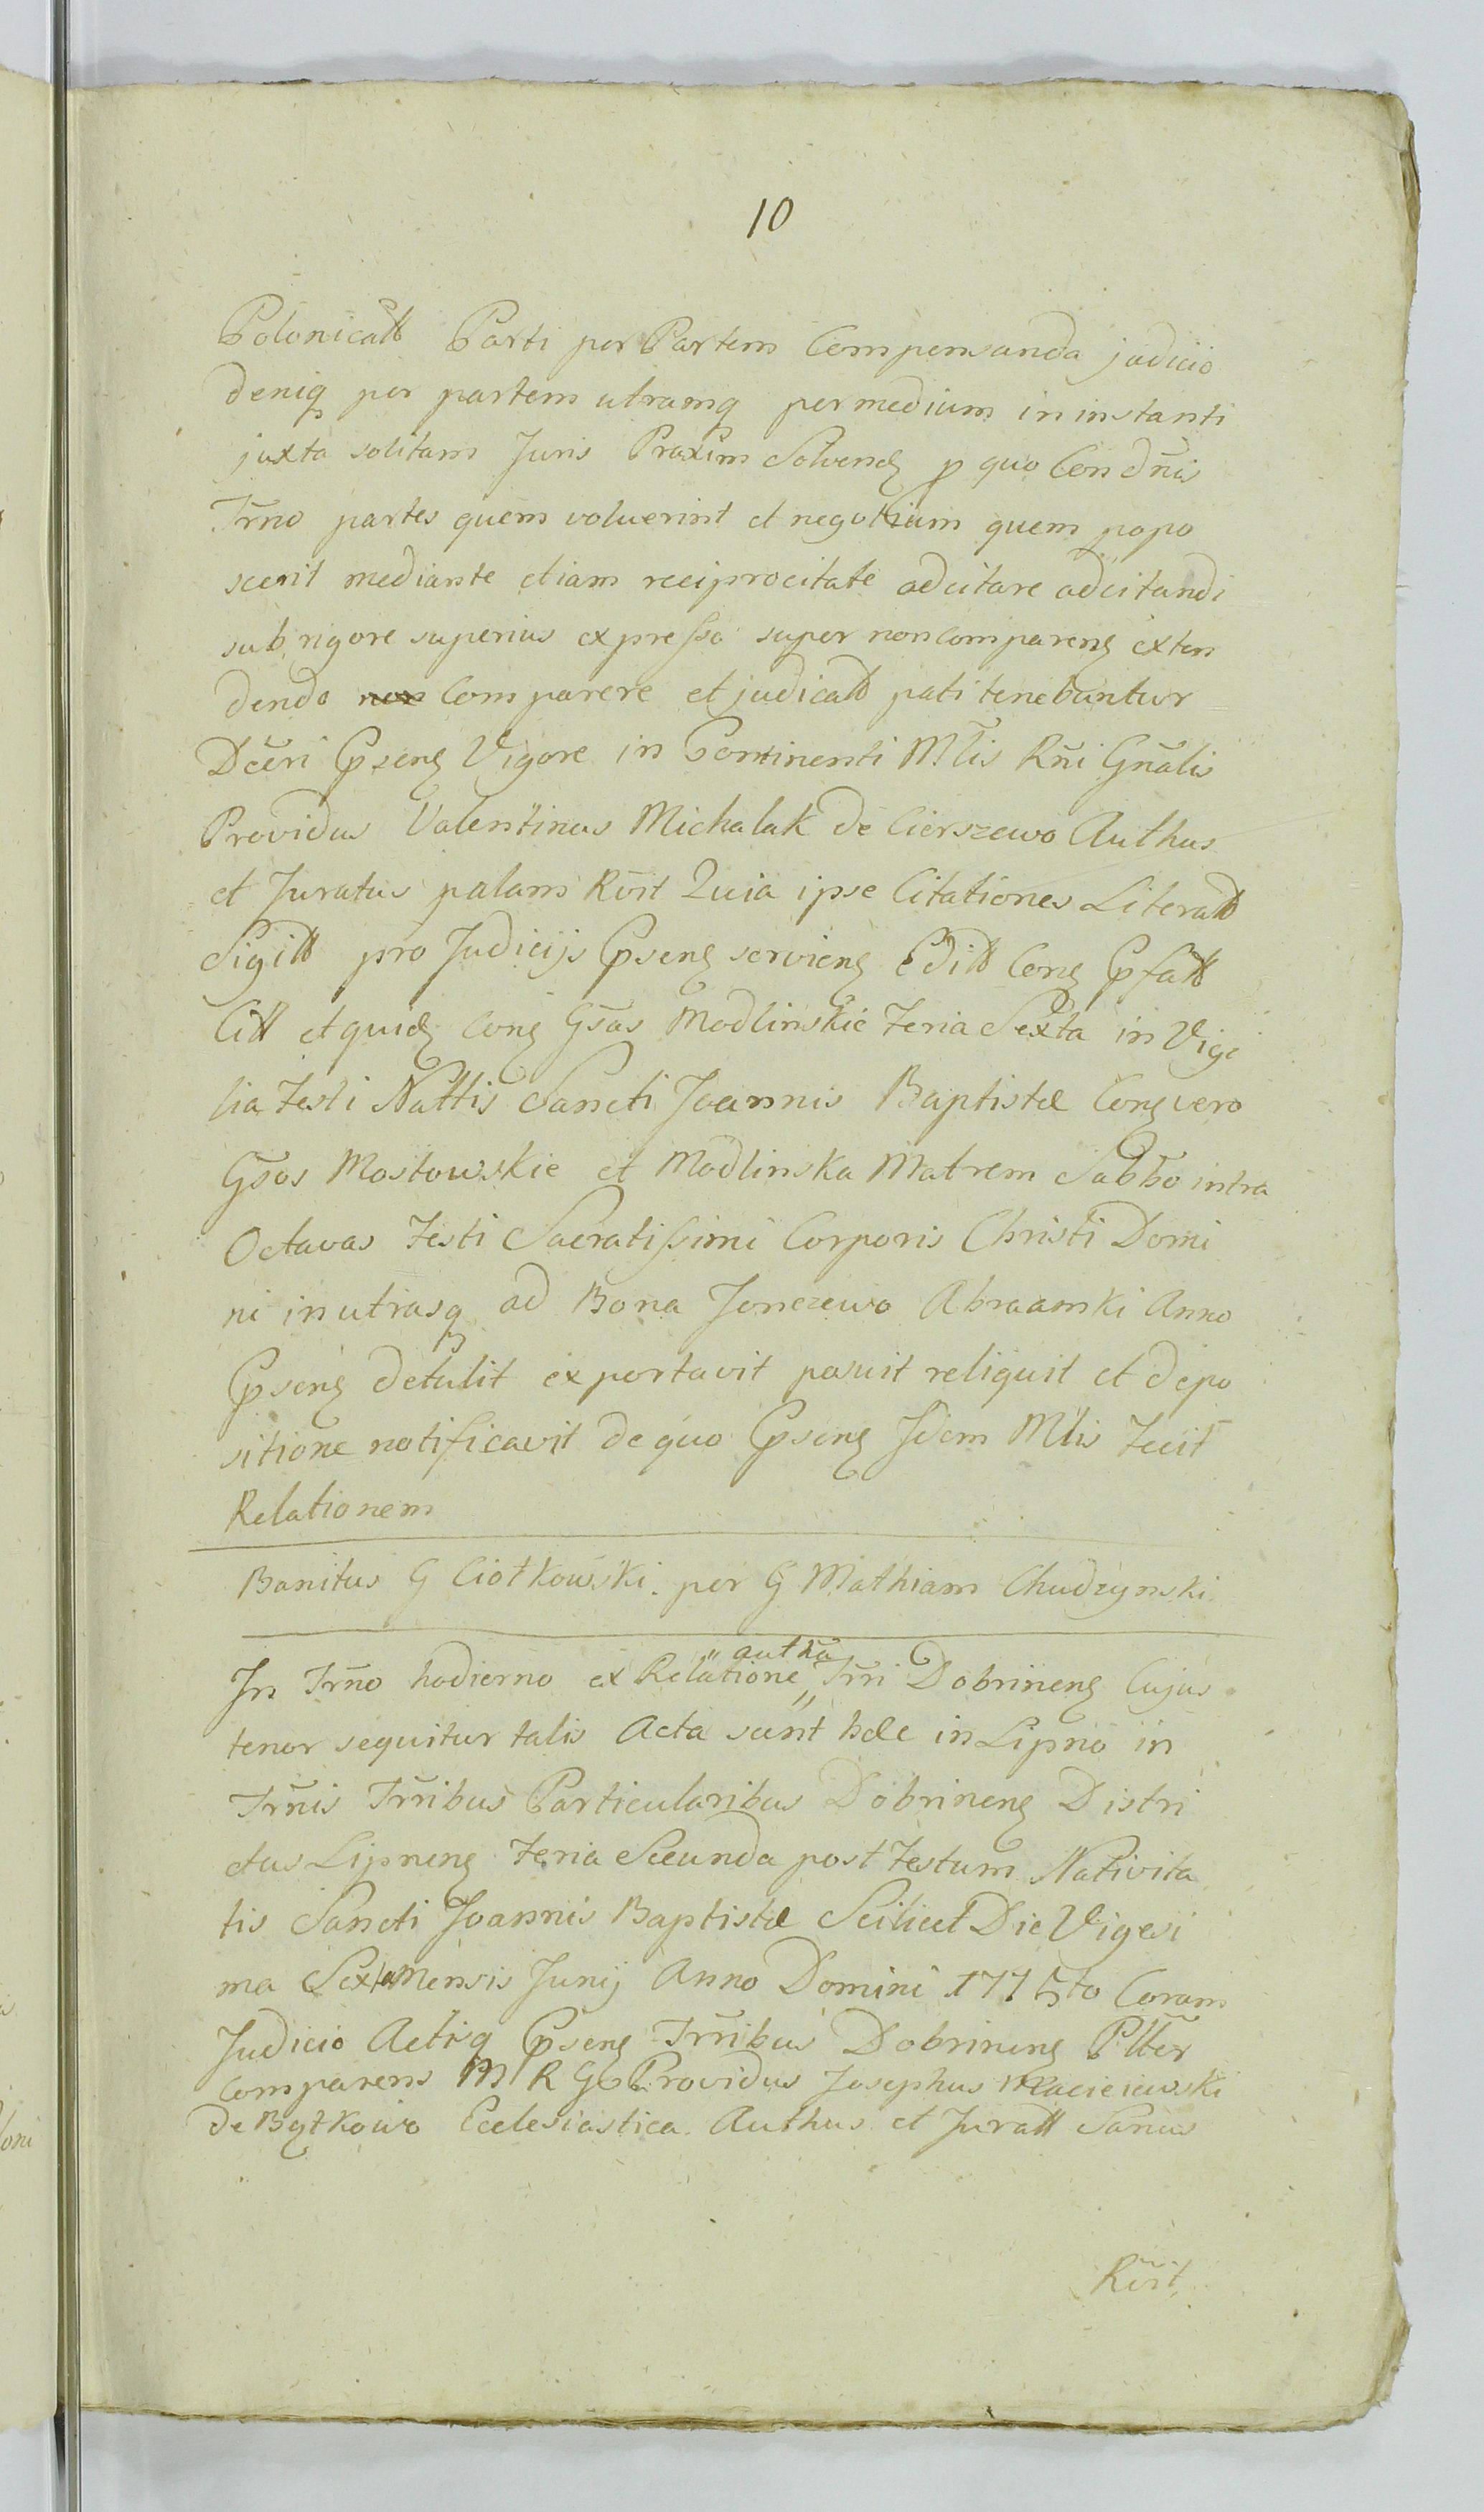 10
Polonicall Parti per Partem Compensanda judicio
deniq per partem utramq per medium in instanti
juxta solitam Juris Praxim Solvend p quo Condn̄is
Trn̄o partes quem voluerint et negotium quem popo
scerit mediante etiam reciprocitate adcitare adcitandi
sub rigore superius expresso super non Comparen exten
dendo non Comparere et judicatt pati tenebuntur
Dc̄eri Cpsen Vigore in Continenti Mlis Rn̄i Gn̄alis
Providus Valentinus Michalak de Cierszewo Authus
et Juratus palam Rv̄it Quia ipse Citationes Literatt
Sigill pro Judicijs Cpsen servien Editt Con Cpfatt
Citt et quid Con Gs̄as Modlinskie Feria Sexta in Vigi
lia Festi Nattis Sancti Joannis Baptistæ Con vero
Gs̄os Mostowskie et Modlinska Matrem Sabbo intra
Octavas Festi Sacratissimi Corporis Christi Domi
ni in utrasq ad Bona Jonczewo Abraamki Anno
Cpsen detulit exportavit posuit reliquit et depo
sitione notificavit de quo Cpsen Idem Mlis Fecit
Relationem
Banitus G Ciołkowski per G Mathiam Chudzynski
autha
In Trn̄o hodierno ex Relatione Trr̄i Dobrinen Cujus
tenor sequitur talis Acta sunt hæc in Lipno in
Trn̄is Trr̄ibus Particularibus Dobrinen Distri
ctus Lipnen Feria Secunda post Festum Nativita
tis Sancti Joannis Baptistæ Scilicet Die Vigesi
ma Sexta Mensis Junij Anno Domini 1775to Coram
Judicio Actisq Cpsen Trr̄ibus Dobrinen Plter
Comparens M R G Providus Josephus Macieiewski
de Bętkowo Ecclesiastica Authus et Juratt Sanus
Rv̄it